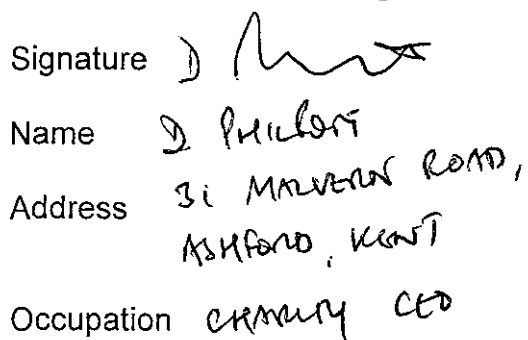 Signature D
Name D PHILPOTT
Address 31 MALVERN ROAD,
ASHFORD, KENT
Occupation CHARITY CEO